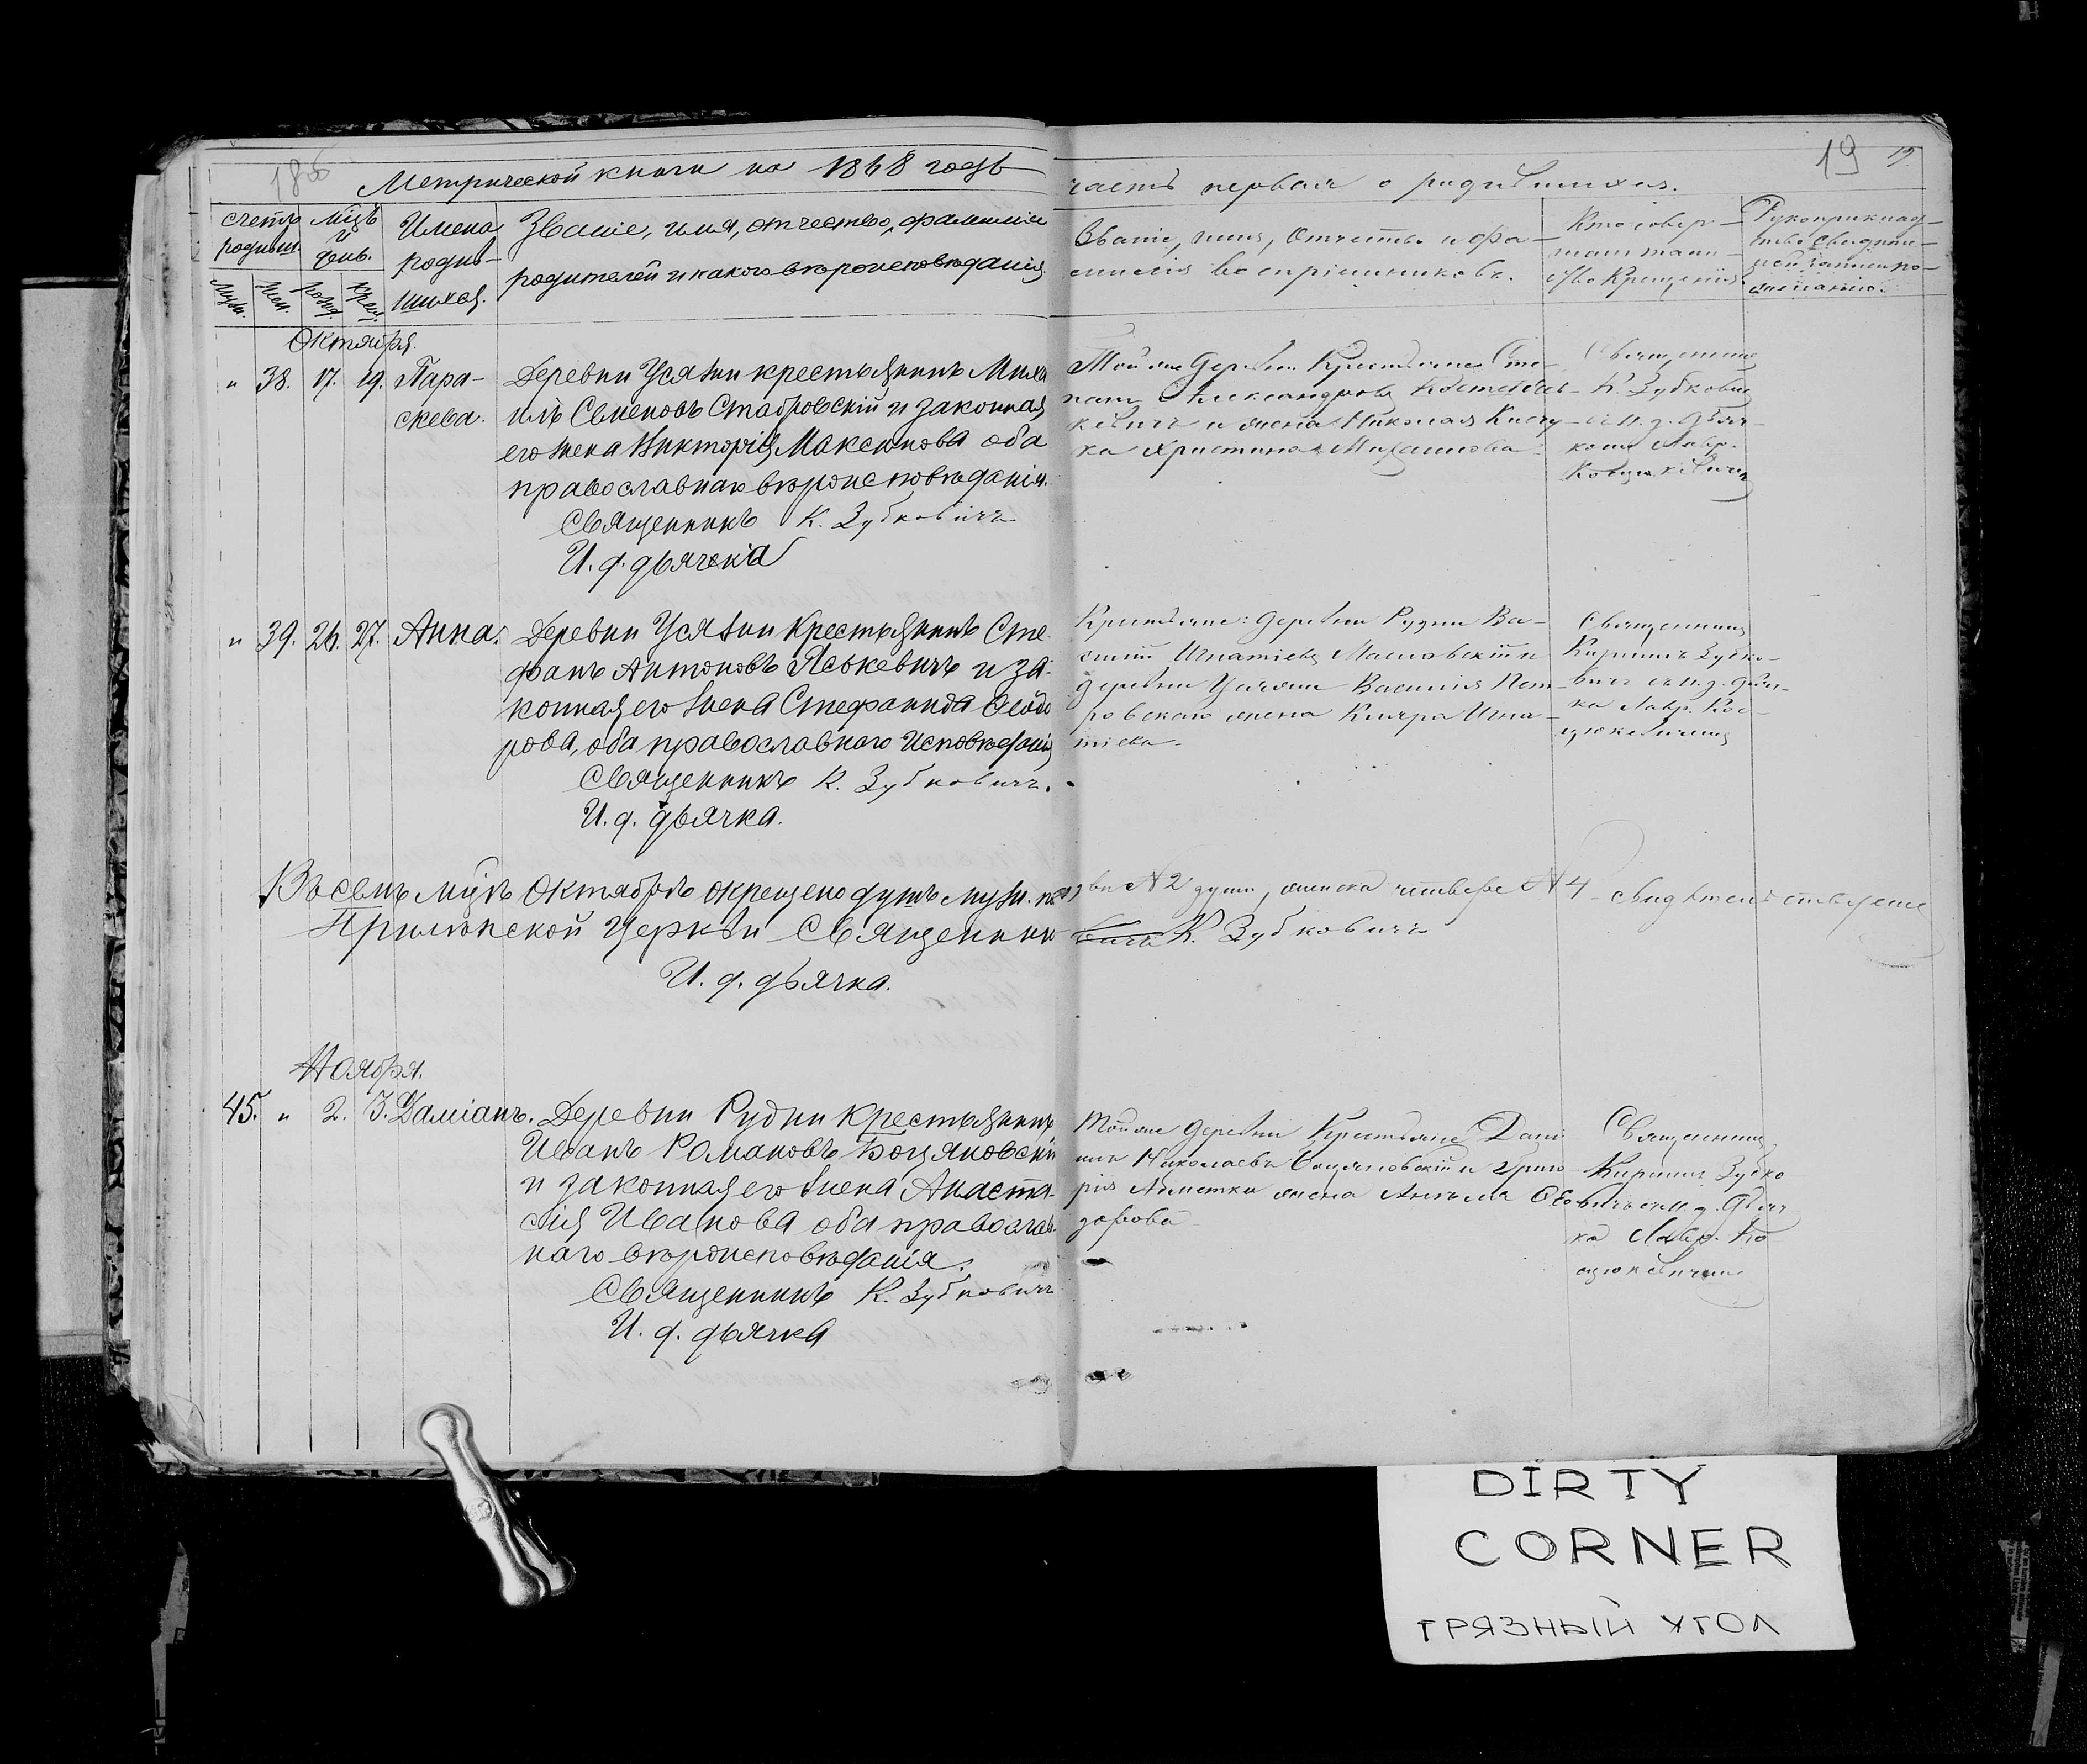 Метрической книги на 1868 годъ
часть первая о родившихся.
19
19
Счетъ родивш.
Муж.
Жен.
Мцъ и день.
рожд.
крещ.
Имена родив-
шихся.
Званіе, имя, отчество, фамилія
родителей и какого вѣроисповѣданія
Званіе, имя, отчество и фа-
милія воспріемниковъ.
Кто совер-
шалъ таин-
ство крещенія.
Рукоприклад-
ство свидѣте-
лей
Октября.
" 38. 17. 19. Пара-
скева.
Деревни Усяжи крестьянинъ Миха
илъ Семеновъ Стабровскій и законная
его жена Викторія Максимова оба
православнаго вѣроисповѣданія.
Священникъ К. Зубковичъ
И. д. дьячка
Той же деревни Крестьяне Сте-
панъ Александровъ
и жена Николая
ка Христина
Священникъ
К. Зубковичъ
съ и. д. дьяч-
комъ Лавр.
" 39. 26. 27. Анна.
Деревни Усяжи Крестьянинъ Сте-
фанъ Антоновъ Яськевичъ и за-
конная его жена Стефанида Ѳеодо
рова, оба православнаго исповѣданія
Священникъ К. Зубковичъ.
И. д. дьячка.
Крестьяне: деревни Рудни Ва-
силій Игнатіевъ Масловскій и
деревни Усяжи Василія Пет-
ровскаго жена Клара Игна-
тіева.
Священникъ
Кириллъ Зубко-
вичъ съ и. д. дьяч-
ка Лавр. Кос-
цюкевичемъ
Въ семъ мцѣ Октябрѣ окрещено душъ муж. пола двѣ № 2 души, женска четыре № 4 Свидѣтельствуемъ
Прилѣпской Церкви Священникъ К. Зубковичъ
И. д. дьячка.
Ноября.
45. " 2. 3. Даміанъ.
Деревни Рудни Крестьянинъ
Иванъ Романовъ Боцяновскій
и законная его жена Анаста-
сія Иванова оба православ-
наго вѣроисповѣданія.
Священникъ К. Зубковичъ
И. д. дьячка
Той же деревни Крестьяне Дани
илъ Николаевъ Боцяновскій и Григо
рія жена Ѳео
дорова
Священникъ
Кириллъ Зубко
вичъ съ и. д. дьяч
ка Лавр. Ко
цюкевичемъ
DIRTY
CORNER
ГРЯЗНЫЙ УГОЛ